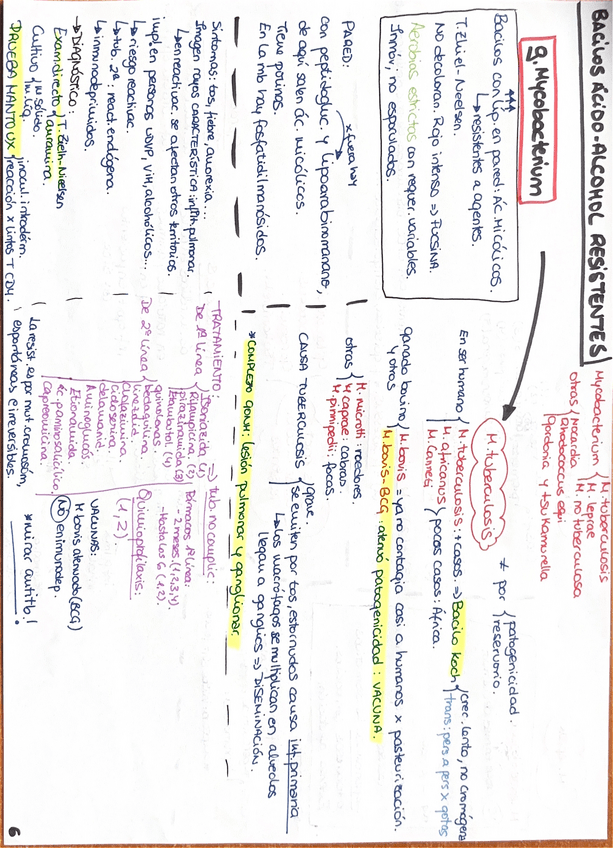 BACILOS ÁCIDO-ALCOHOL RESISTENTES
Mycobacterium
M. tuberculosis
M. leprae
M. no tuberculosa
otras
Nocardia
Rhodococcus equi
Gordonia y tsukamurella
g. Mycobacterium
Bacilos con lip. en pared: Ác. Micólicos.
↳ resistentes a agentes.
T. Zhiel-Neelsen.
No decoloran. Rojo intenso ⇒ FUCSINA.
Aerobios estrictos con requer. variables.
Inmóv; no esporulados.
M. tuberculosis
≠ por
patogenicidad.
reservorio.
En ser humano
M. tuberculosis: + casos. ⇒ Bacilo Koch
crec. lento, no cromógena
trans: pers a pers x gotas
M. africanus
M. Canneti
pocos casos: África.
ganado bovino y otros
M. bovis = ya no contagia casi a humanos x pasteurización.
M. bovis-BCG: atenuó patogenicidad: VACUNA.
otras
M. microtti: roedores.
M. caprae: cabras.
M. pinnipedii: focas.
PARED:
x fuera hay
con peptidogluc. y lipoarabinomanano,
de aquí salen ác. micólicos.
Tiene porinas.
En la mb hay fosfatidilmanósidos.
CAUSA TUBERCULOSIS
grave.
se emiten por tos, estornudos causa inf. primaria
↳ Los macrófagos se multiplican en alveolos
llegan a ganglios ⇒ DISEMINACIÓN.
* COMPLEJO GOHN: lesión pulmonar y ganglionar.
Síntomas: tos, fiebre, anorexia...
Imagen rayos CARACTERÍSTICA infiltr. pulmonar.
↳ en reactivac. se afectan otros territorios.
impl. en personas UDVP, VIH, alcohólicos...
↳ riesgo reactivac.
↳ tub. 2ª: react. endógena.
↳ inmunodeprimidos.
→ DIAGNÓSTICO:
Examen directo
T. Zielh-Nielsen
auramina.
Cultivo
M sólido.
m. líq.
PRUEBA MANTOUX
inocul. intradérm.
reacción x linfos T CD4.
TRATAMIENTO:
De 1ª línea
Isoniazida (1)
Rifampicina (2)
Pirazinamida (3)
Etambutol (4)
De 2ª línea
quinolonas.
bedaquilina
linezolid.
Clofazimina
cicloserina.
delamanid.
Aminoglucós
Etionamida.
Ác. paraminosalicílico.
Capreomicina.
⇒ tub. no complic:
Fármacos 1ª línea:
- 2 meses: (1,2,3,4).
- Hasta los 6 (1,2).
Quimioprofilaxis:
(1,2).
VACUNAS:
M bovis atenuado (BCG)
NO en inmunodep.
La resist. es por mut. cromosóm,
espontáneas e irreversibles.
* mirar autitb!
6